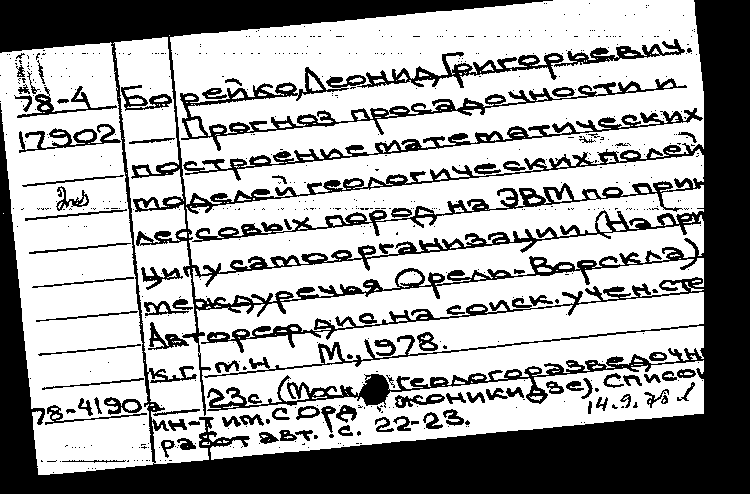 78-4 Борейко, Леонид Григорьевич.
17902 Прогноз просадочности и
построение математических
моделей геологических полей
лессовых пород на ЭВМ по прин
ципу самоорганизации. (На при
междуречья Орель-Ворскла).
Автореф. дис. на соиск. учен. сте
к.г.-м.н. М., 1978.
78-41903 23с. (Моск. геологоразведочн
ин-т им. С Орд жоникидзе). Список
работ авт.: с. 22-23. 14.9.78